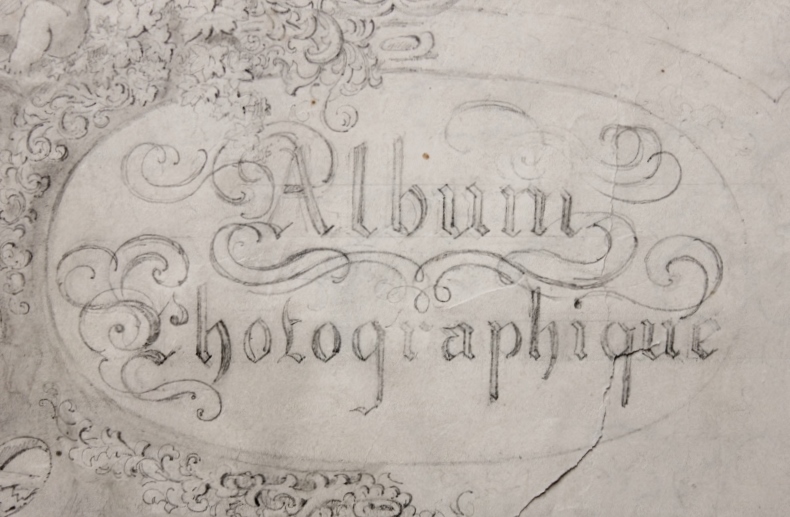 Album
Photographique